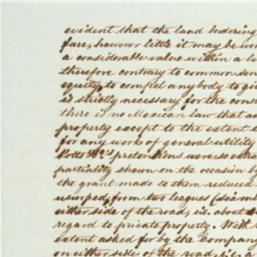 evident that the land bordering
fare, however little it may be wor
a considerable value within a li
therefore contrary to common sen
equity, to compel any body to gi
is strictly necessary for the const
there is no Mexican law that au
property except to the extent
for any work of general utility
pretensions were so extra
partiality shown on the occasion by
the grant made to them reduced
usurped, from two leagues
either side of the road, i.e. about
regard to private property. With
extent asked for by the Company
on either side of the road, is a